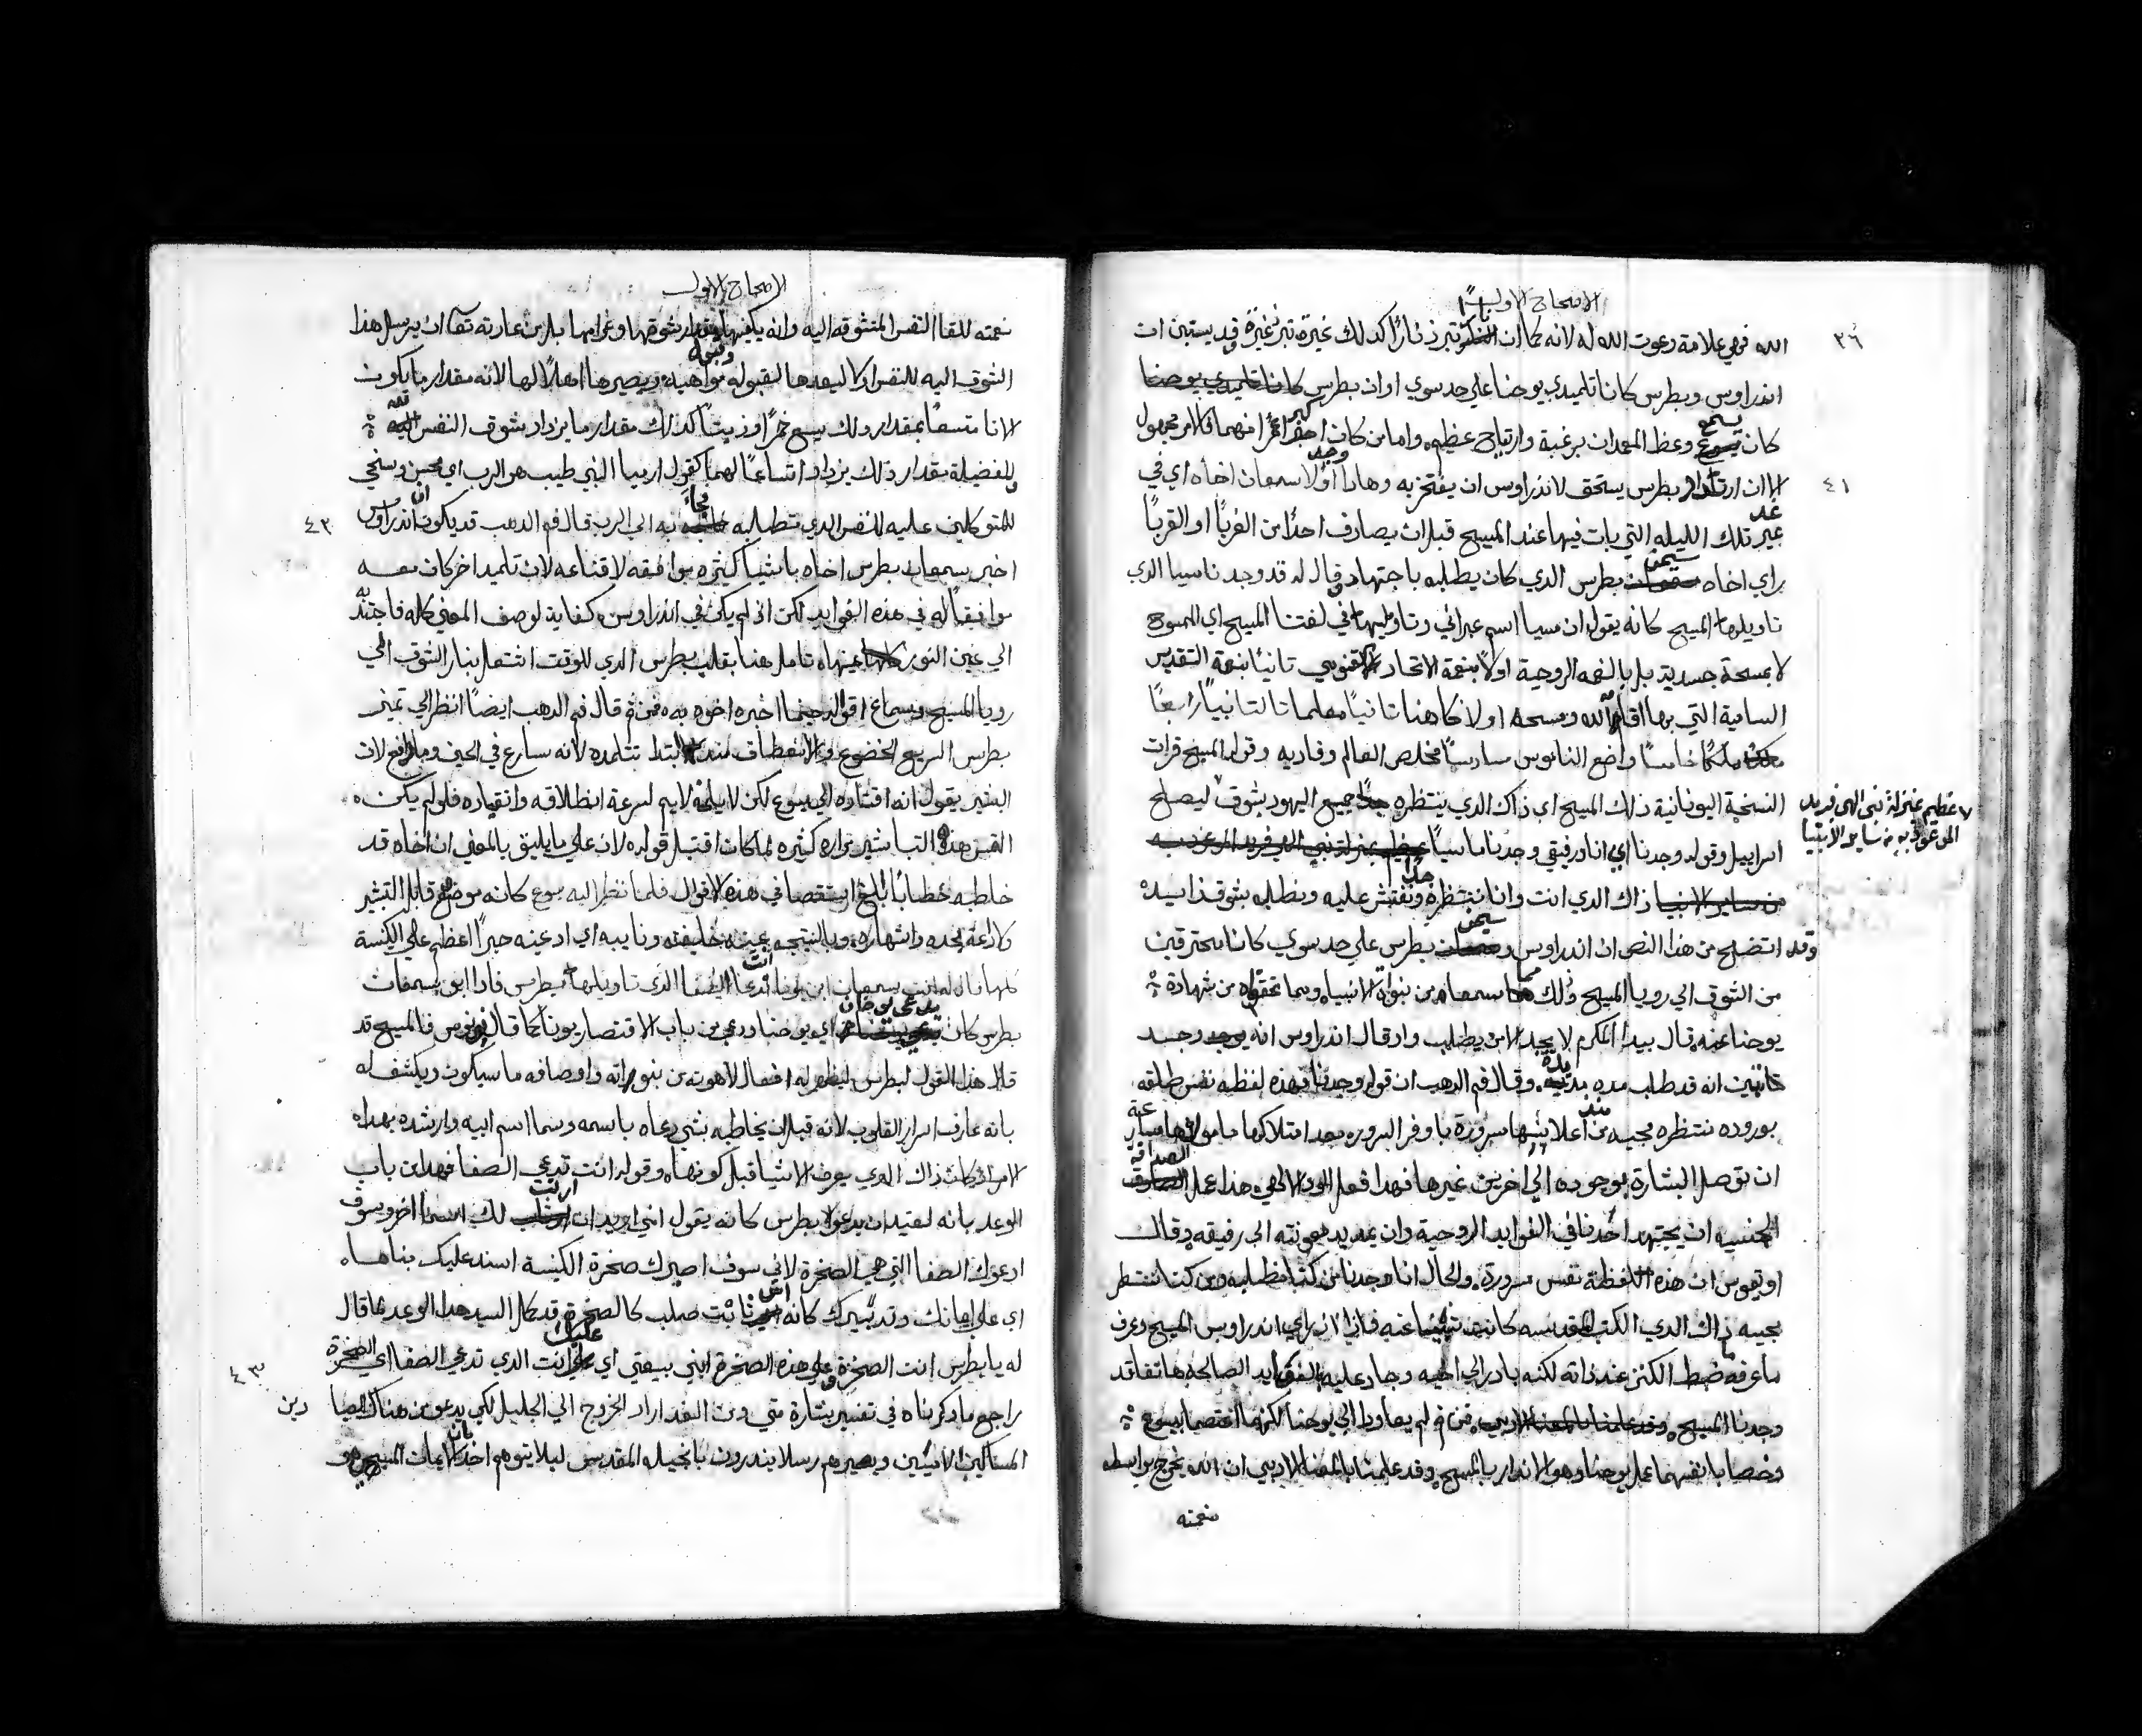 الاصحاح الاول
٣٦
الله فهي علامة دعوت الله له لانه كما ان تبرز نارًا كذلك غيرة تبرز غيرة وقد يستبين ان
اندراوس وبطرس كانا تلميدي يوحنا علي حد سوي اوان بطرس كانا تلميدي يوحنا
كان يسمع وعظ المعمدان برغبة وارتياح عظيم واما من كان منهما فالامر مجهول
٤١
الا ان ارتداد بطرس يستحق لاندراوس ان يفتخر به وهذا وجد أولا سمعان اخاه اي في
غد تلك الليله التي بات فيها عند المسيح قبل ان يصادف احدًا من الغربًا او القربًا
راي اخاه سيمن بطرس الدي كان يطلبه باجتهاد وقال له قد وجدنا مسيا الدي
تاويلها المسيح كانه يقول ان مسيا اسم عبراني وتاويلها في لغتنا المسيح اي الممسوح
لا بمسحة جسدية بل بالنعمه الروحية اولًا بنعمة الاتحاد الاقنومي تانيًا بنعمة التقديس
السامية التي بها اقامه الله ومسحه اولا كاهنا تانيًا معلما تالتا نبيًا رابعًا
ملكًا خامسًا واضع الناموس سادسًا مخلص العالم وفاديه وقوله المسيح قرات
النسخة اليونانية ذلك المسيح اي ذاك الدي ينتظره جميع اليهود بشوق ليصلح
لا عظيم بمنزلة نبي الهي فريد
المدعو به من ساير الانبيا
اسراييل وقوله وجدنا اي انا ورفيقي وجدنا ماسيًا عظيم بمنزلة نبي الهي فريد المدعو به
من ساير الانبيا ذاك الدي انت وانا ننتظره جدًا ونفتش عليه ونطلبه بشوق
وقد اتضح من هذا النص ان اندراوس وسيمن بطرس علي حد سوي كانا محترقين
من الشوق الي رويا المسيح وذلك مما سمعاه من نبوات الانبيا ومما تحققاه من شهادة
يوحنا عنه قال بيدا المكرم لا يجد الا من يطلب واد قال اندراوس انه وجد
تبين انه قد طلب مده مديده وقال فم الدهب ان قوله وجدنا فهذه لفظه نفس طلقه
بوروده منتظره مجيه من اعلا مسرورة باوفر السرور بعد امتلاكها مامولها
ان توصل البشارة بوجوده الي اخرين غيرها فهدا فعل الود الالهي هذا عمل الصداقه
الجنسيه ان يجتهد احدنا في الفوايد الروحية وان يمد يد معونته الي رفيقه وقال
اوتيموس ان هذه اللفظة نفس مسرورة والحال اننا وجدنا من كنا نطلبه ومن كنا ننتظر
مجيه ذاك الدي الكتب المقدسه كانت عنه فاذا اذ راي اندراوس المسيح وعرف
ما عرفه ضبط الكنز عند ذاته لكنه بادر الي اخيه وجاد عليه بالفوايد الصالحه هاتفا قد
وجدنا المسيح فمن تم لم يعاودا الي يوحنا لكنهما اعتصما بيسوع
وخصا بانفسهما عمل يوحنا وهو الاندار بالمسيح وقد علمنا بالمعنا الادبي ان الله يخرج بواسطه
نعمته
الاصحاح الاول
نعمته للقا النفس المتشوقه اليه وانه يكفيها بمقدار شوقها وغرامها بل من عادته تعالى ان يرسل هذا
الشوق اليه للنفس اولا ليعدها لقبوله ومواهبه ويصيرها اهلًا لها لانه مقدار ما يكون
الانا متسعًا بمقدار دلك يسع خمرًا او زيتًا كدلك مقدار ما يزداد شوق النفس
للفضيلة بمقدار دلك يزداد اتساعًا لهما كقول ارميا النبي طيب هو الرب اي محسن وسخي
٤٢
للمتوكلين عليه للنفس الدي تطلبه فجاء به الي الرب قال فم الدهب قد يكون ان اندراوس
اخبر سمعان بطرس اخاه باشيا كثيره موافقه لاقناعه لان تلميد اخر كان معه
موافقًا له في هذه الفوايد لكن اذ لم يكن في اندراوس كفاية لوصف المعني كله فاجتده
الي عين النور عينها تامل هنا بقلب بطرس الدي للوقت اشتعل بنار الشوق الي
رويا المسيح وسماع اقواله حينما اخبره اخوه به فمن تم قال فم الدهب ايضًا انظر الي تميز
بطرس السريع الخضوع والانعطاف مند ابتدا تتلمده لانه سارع في الحين وما دافع لان
البشير يقول انه اقتاده الي يسوع لكن لا يلمه لايم لسرعة انطلاقه وانقياده فلو لم يكن
التباشير مراره كثيره لما كان اقتبل قوله لان علي ما يليق بالمعني ان اخاه قد
خاطبه خطابًا بليغ استقصا في هذه الاقوال فلما نظر اليه يسوع كانه موضع قابل التبشير
وكادعة يحده واشهاره وبالنتيجه عينه خليفته ونايبه اي ادعينه حبرًا اعظم علي الكنيسة
كلها قال له انت سمعان ابن يونا انت تدعا الصفا الدي تاويلها بطرس فادا ابو سمعان
بطرس كان يدعي يوحنان اي يوحنا ودعي من باب الاقتصار يونا كما قال فالمسيح قد
قال هذا القول لبطرس ليظهر له افعال لاهوته من نبواته واوصافه ما سيكون ويكشف له
بانه عارف اسرار القلوب لانه قبل ان يخاطبه بشي دعاه باسمه وسما اسم ابيه وارشده بهداه
الامر اد كان ذاك الدي يعرف الاشيا قبل كونها وقوله انت تدعي الصفا فهدا من باب
الوعد بانه لعتيد ان يدعوا بطرس كانه يقول اني اريد ان ارتب لك اسما اخر وسوف
ادعوك الصفا التي هي الصخرة لاني سوف اصيرك صخرة الكنيسة اسند عليك بناها
اي علي امانك وتدبيرك كانه اس تابت صلب كالصخرة قد كمل السيد هدا الوعد لما قال
له يا بطرس انت الصخرة وعلي هذه الصخرة ابني بيعتي اي عليك انت الدي تدعي الصفا اي الصخرة
٤٣
راجع ما دكرناه في تفسير بشارة متي ومن الغد اراد الخروج الي الجليل لكي يدعو من هناك ايضا
المساكين الاميين ويصيرهم رسلا يندرون بانجيله المقدس ليلا يتوهم احد بان ايمان المسيح هو
دين